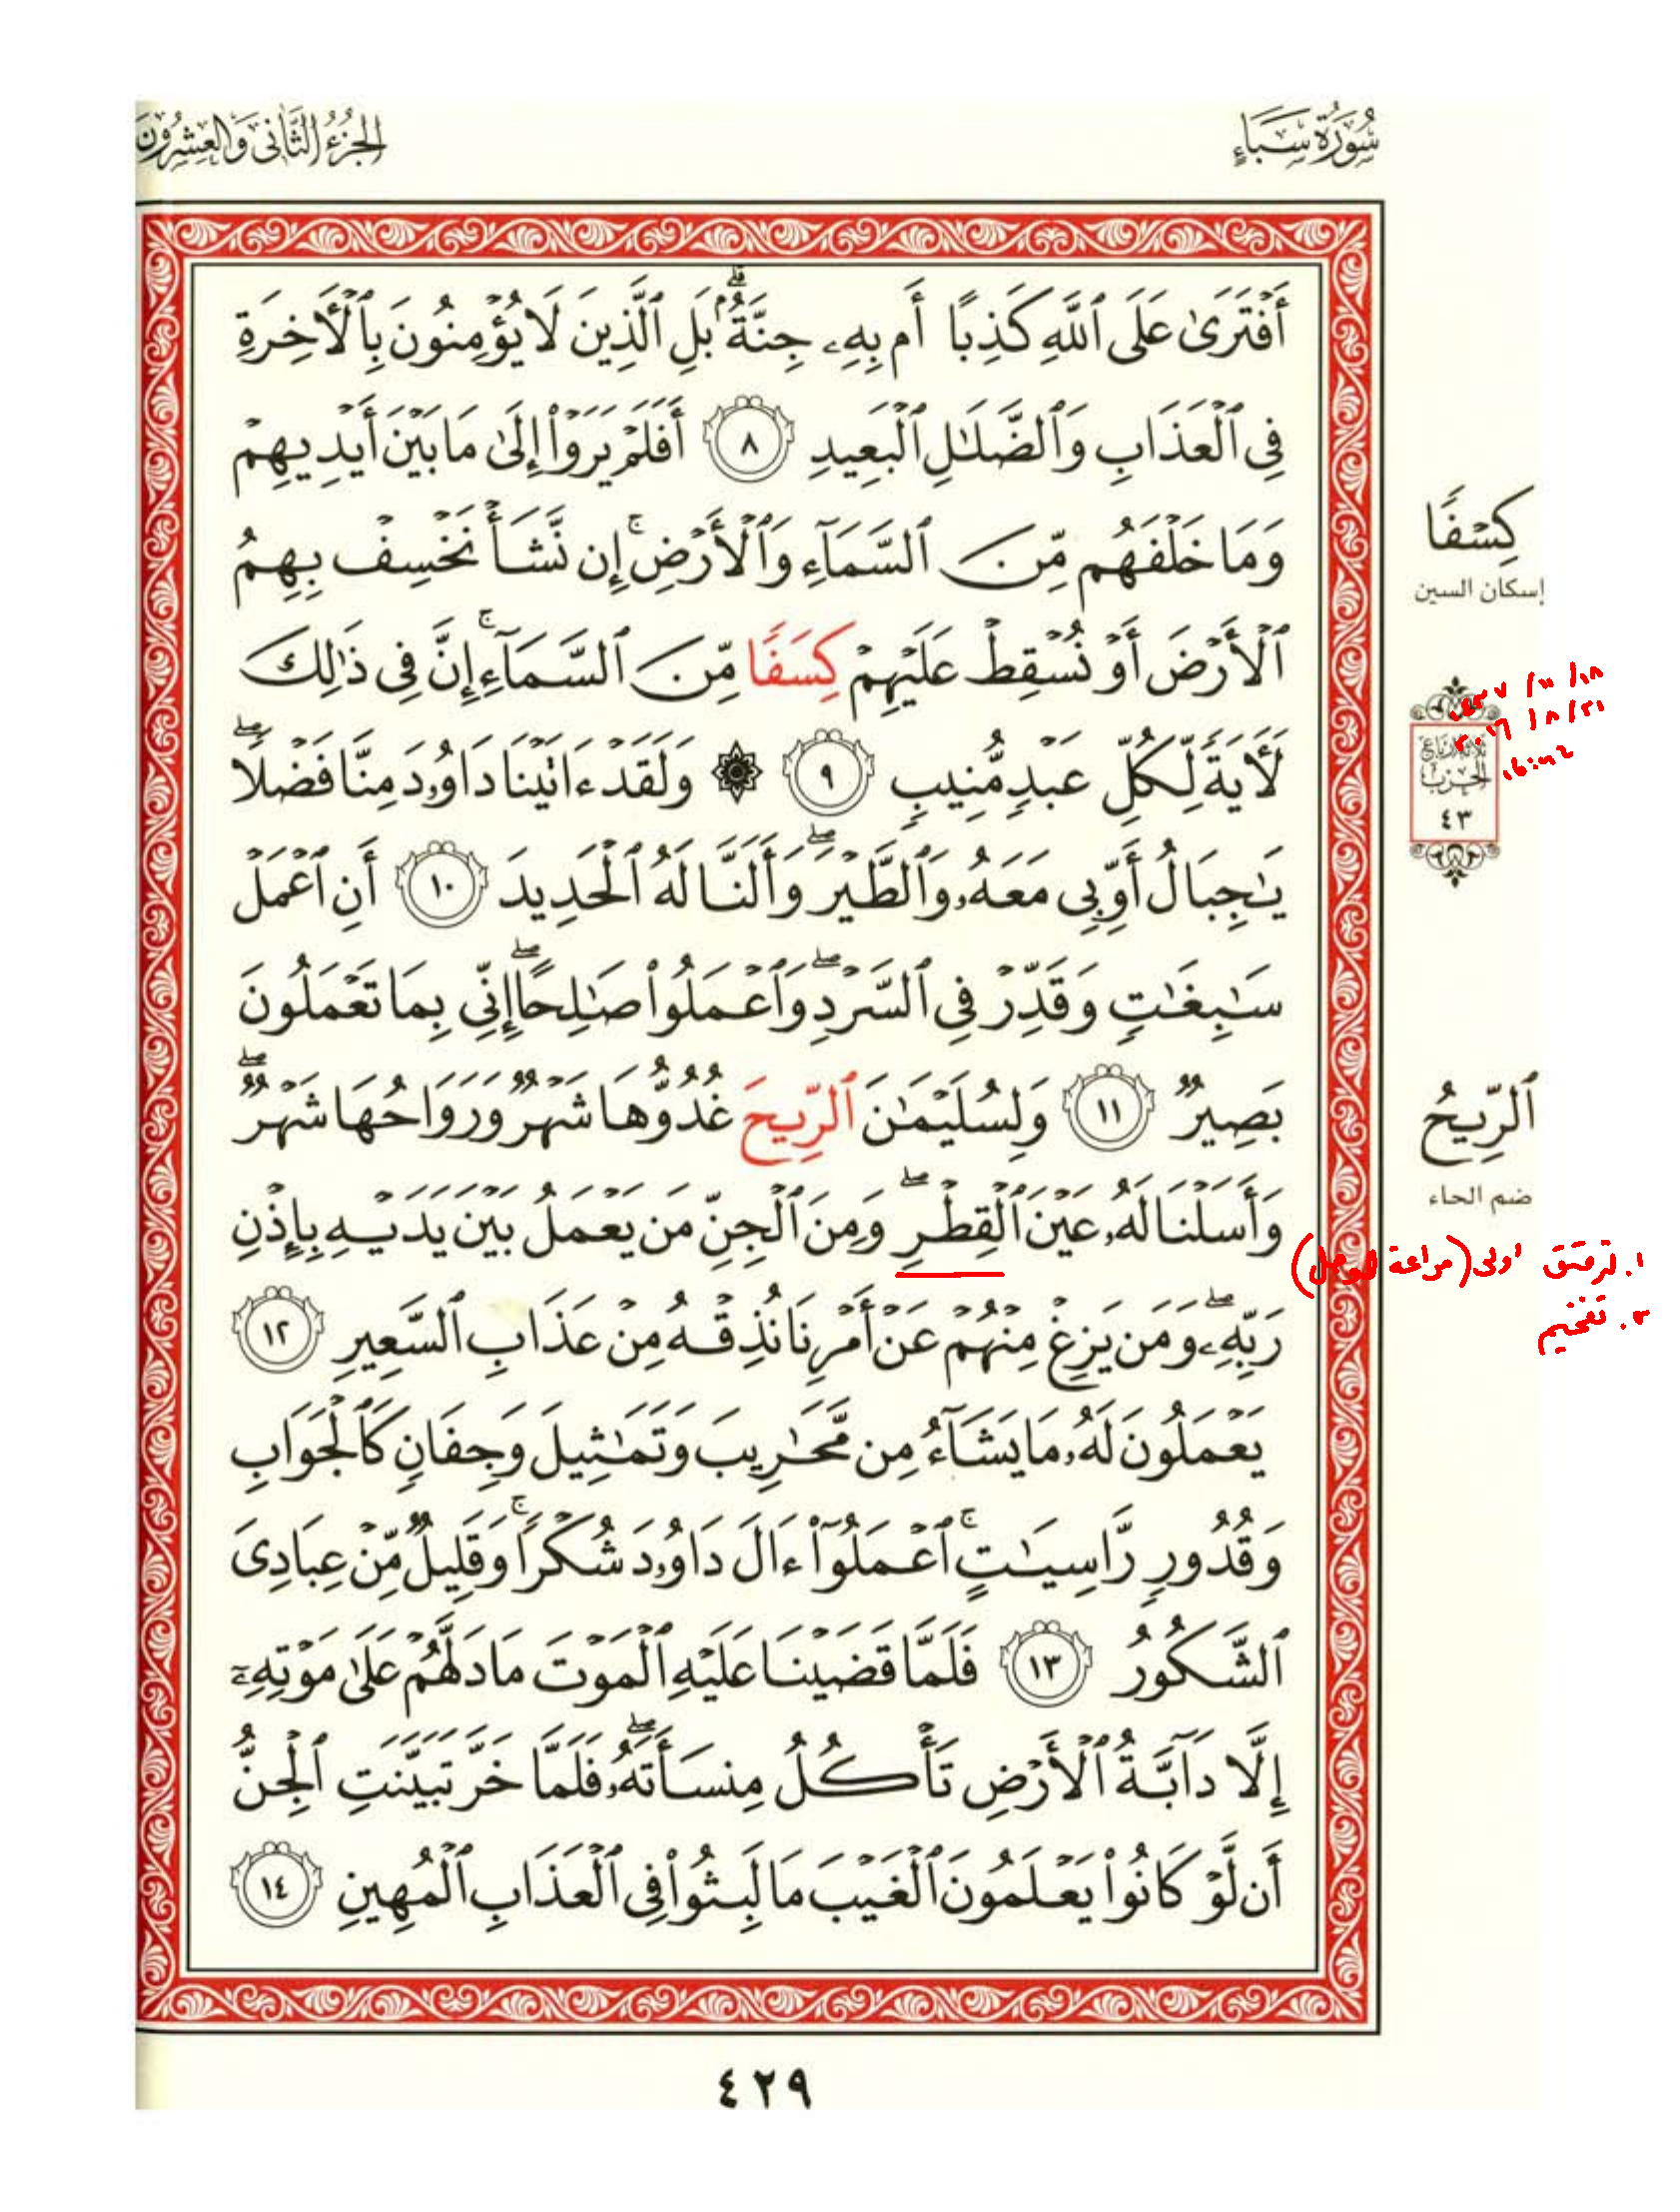 سُورَةُ سَبَإٍ
الجُزْءُ الثَّانِي وَالعِشْرُونَ
أَفْتَرَىٰ عَلَى ٱللَّهِ كَذِبًا أَم بِهِۦ جِنَّةٌۢ ۗ بَلِ ٱلَّذِينَ لَا يُؤْمِنُونَ بِٱلْأَخِرَةِ
فِى ٱلْعَذَابِ وَٱلضَّلَـٰلِ ٱلْبَعِيدِ ٨ أَفَلَمْ يَرَوْا۟ إِلَىٰ مَا بَيْنَ أَيْدِيهِمْ
وَمَا خَلْفَهُم مِّنَ ٱلسَّمَآءِ وَٱلْأَرْضِ ۚ إِن نَّشَأْ نَخْسِفْ بِهِمُ
ٱلْأَرْضَ أَوْ نُسْقِطْ عَلَيْهِمْ كِسَفًا مِّنَ ٱلسَّمَآءِ ۚ إِنَّ فِى ذَٰلِكَ
لَأَيَةً لِّكُلِّ عَبْدٍ مُّنِيبٍ ٩ ۞ وَلَقَدْ ءَاتَيْنَا دَاوُۥدَ مِنَّا فَضْلًا ۖ
يَـٰجِبَالُ أَوِّبِى مَعَهُۥ وَٱلطَّيْرَ ۖ وَأَلَنَّا لَهُ ٱلْحَدِيدَ ١٠ أَنِ ٱعْمَلْ
سَـٰبِغَـٰتٍ وَقَدِّرْ فِى ٱلسَّرْدِ ۖ وَٱعْمَلُوا۟ صَـٰلِحًا ۖ إِنِّى بِمَا تَعْمَلُونَ
بَصِيرٌ ١١ وَلِسُلَيْمَـٰنَ ٱلرِّيحَ غُدُوُّهَا شَهْرٌ وَرَوَاحُهَا شَهْرٌ ۖ
وَأَسَلْنَا لَهُۥ عَيْنَ ٱلْقِطْرِ ۖ وَمِنَ ٱلْجِنِّ مَن يَعْمَلُ بَيْنَ يَدَيْهِ بِإِذْنِ
رَبِّهِۦ ۖ وَمَن يَزِغْ مِنْهُمْ عَنْ أَمْرِنَا نُذِقْهُ مِنْ عَذَابِ ٱلسَّعِيرِ ١٢
يَعْمَلُونَ لَهُۥ مَا يَشَآءُ مِن مَّحَـٰرِيبَ وَتَمَـٰثِيلَ وَجِفَانٍ كَٱلْجَوَابِ
وَقُدُورٍ رَّاسِيَـٰتٍ ۚ ٱعْمَلُوٓا۟ ءَالَ دَاوُۥدَ شُكْرًا ۚ وَقَلِيلٌ مِّنْ عِبَادِىَ
ٱلشَّكُورُ ١٣ فَلَمَّا قَضَيْنَا عَلَيْهِ ٱلْمَوْتَ مَا دَلَّهُمْ عَلَىٰ مَوْتِهِۦٓ
إِلَّا دَآبَّةُ ٱلْأَرْضِ تَأْكُلُ مِنسَأَتَهُۥ ۖ فَلَمَّا خَرَّ تَبَيَّنَتِ ٱلْجِنُّ
أَن لَّوْ كَانُوا۟ يَعْلَمُونَ ٱلْغَيْبَ مَا لَبِثُوا۟ فِى ٱلْعَذَابِ ٱلْمُهِينِ ١٤
كِسْفًا
إسكان السين
ثلاثة أرباع
الحزب
٤٣
ٱلرِّيحُ
ضم الحاء
١. ترقيق اولى (مراعة للوصل)
٢. تفخيم
٤٢٩